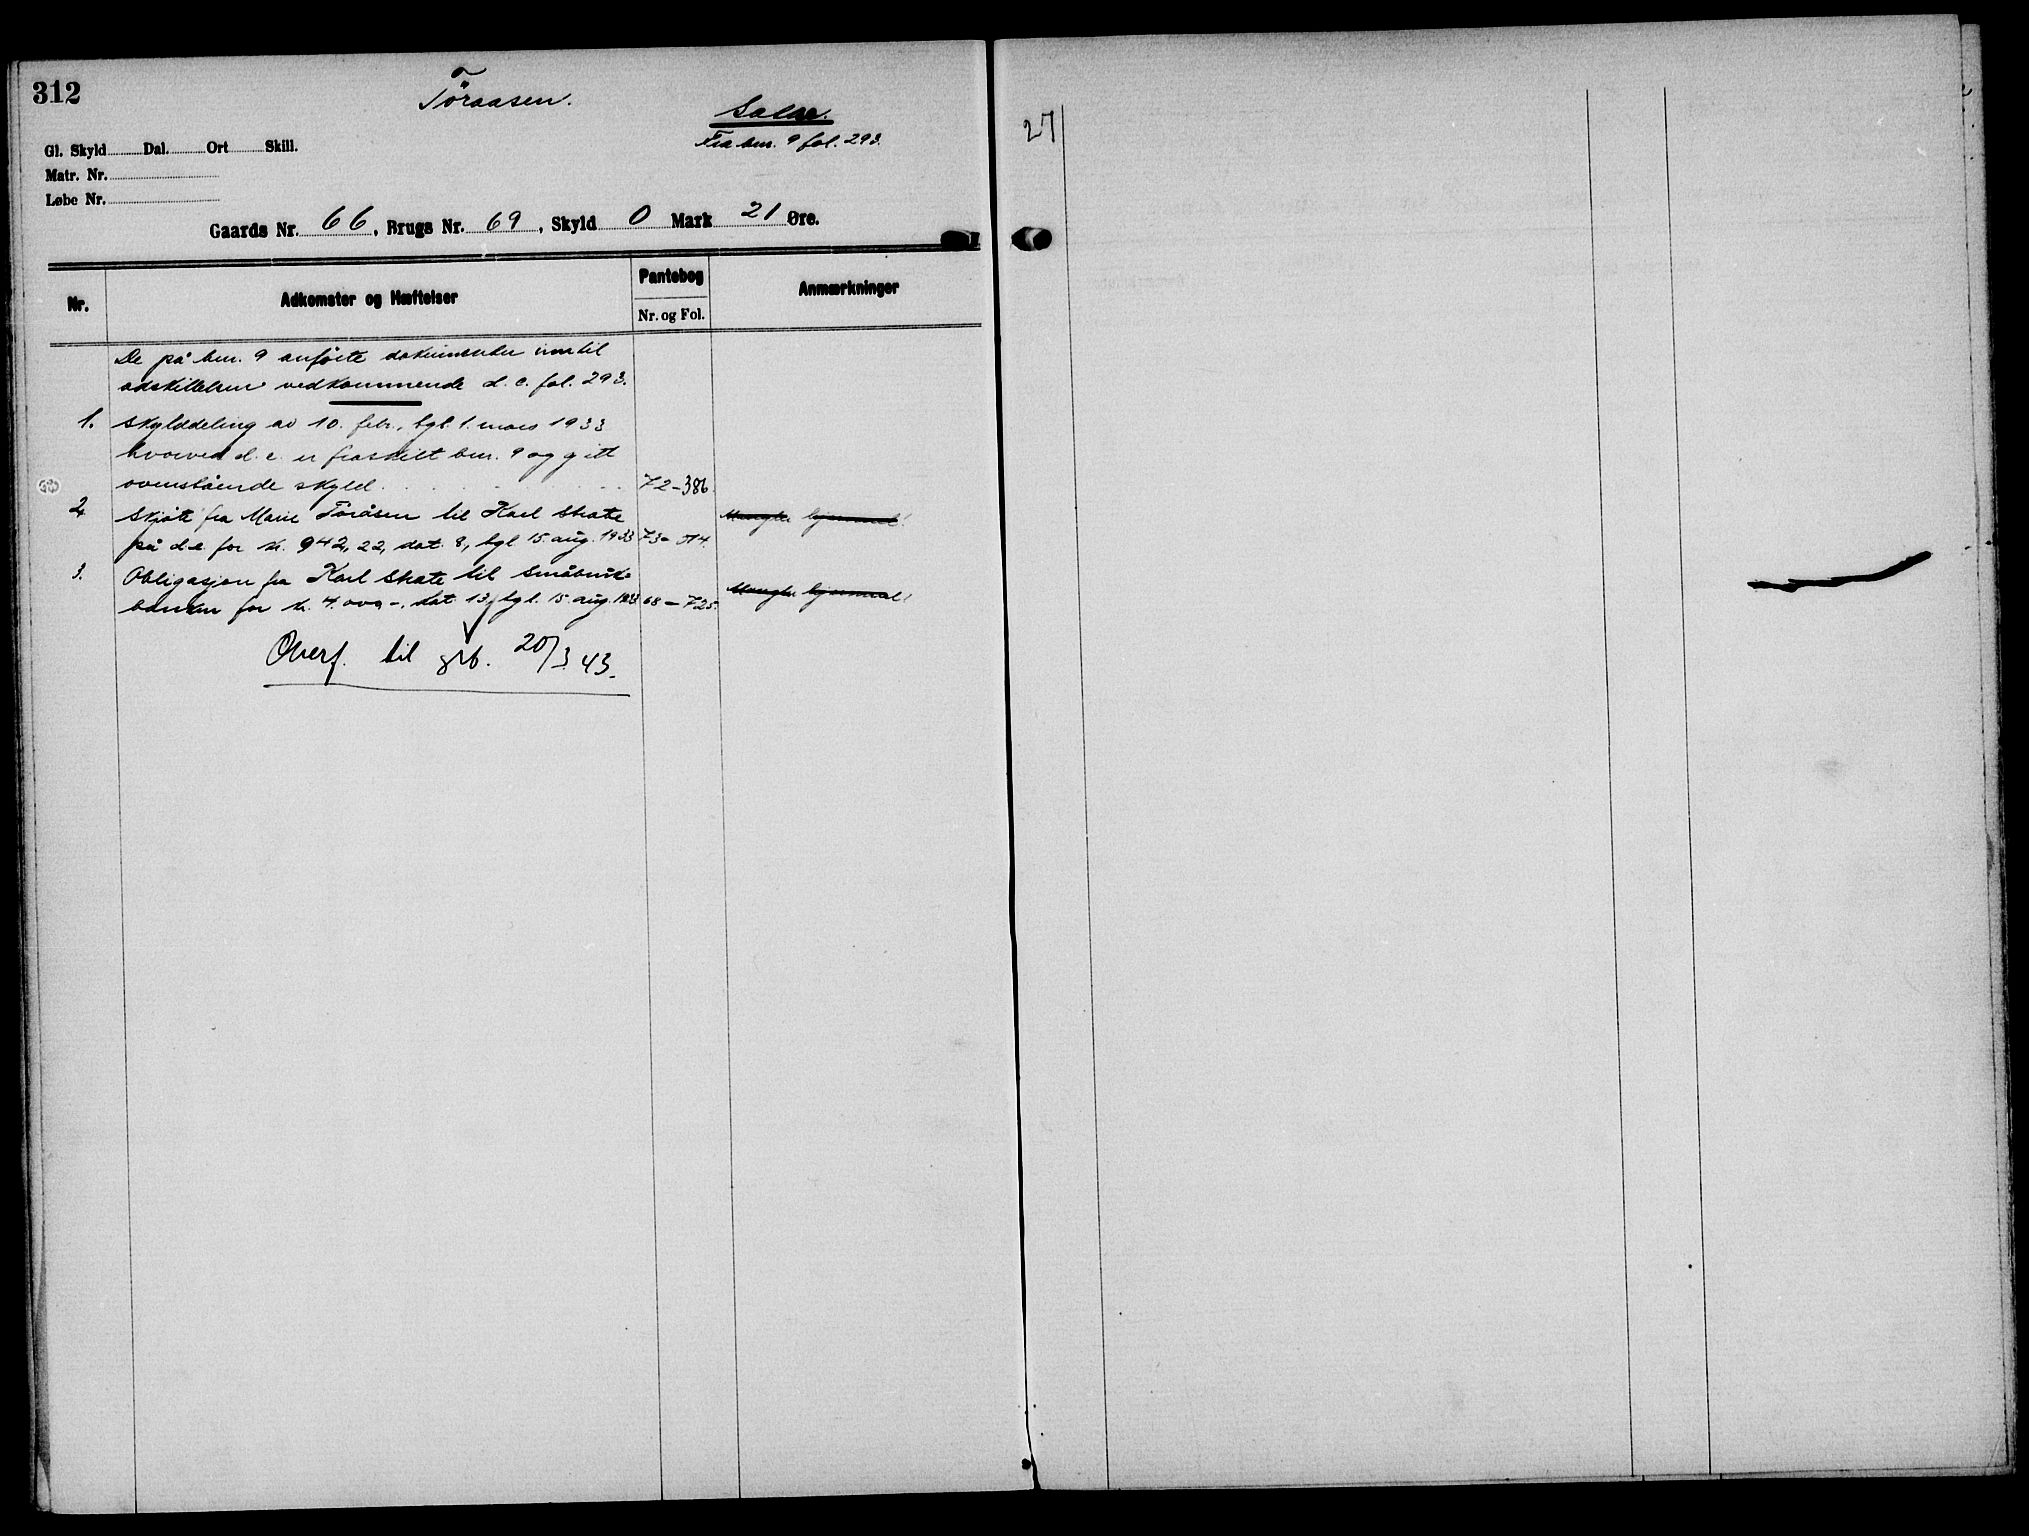 312
Töraasen.
Fra bnr. 9 fol. 293.
Gl. Skyld Dal. Ort Skill.
Matr. Nr.
Løbe Nr.
Gaards Nr. 66, Brugs Nr. 69, Skyld 0 Mark 21 Øre.
Nr. Adkomster og Hæftelser Pantebog Nr. og Fol. Anmærkninger
De på bnr. 9 anførte dokumenter inntil
adskillelsen vedkommende d. e. fol. 293.
1. Skylddeling av 10. febr., tgl. 1. mars 1933
hvorved d. e. er fraskilt bnr. 9 og gitt
ovenstående skyld. 72-386.
2. Skjøte fra Marie Töråsen til Karl Skate Mangler hjemmel!
på d.e. for kr. 942,22, dat. 8., tgl. 15. aug. 1933 73- 514.
3. Obligasjon fra Karl Skate til Småbruk-
banken for kr. 4.000 -, dat 13, tgl. 15. aug. 1933 68 - 725. Mangler hjemmel!
Overf. til grb. 20/3.43.
27